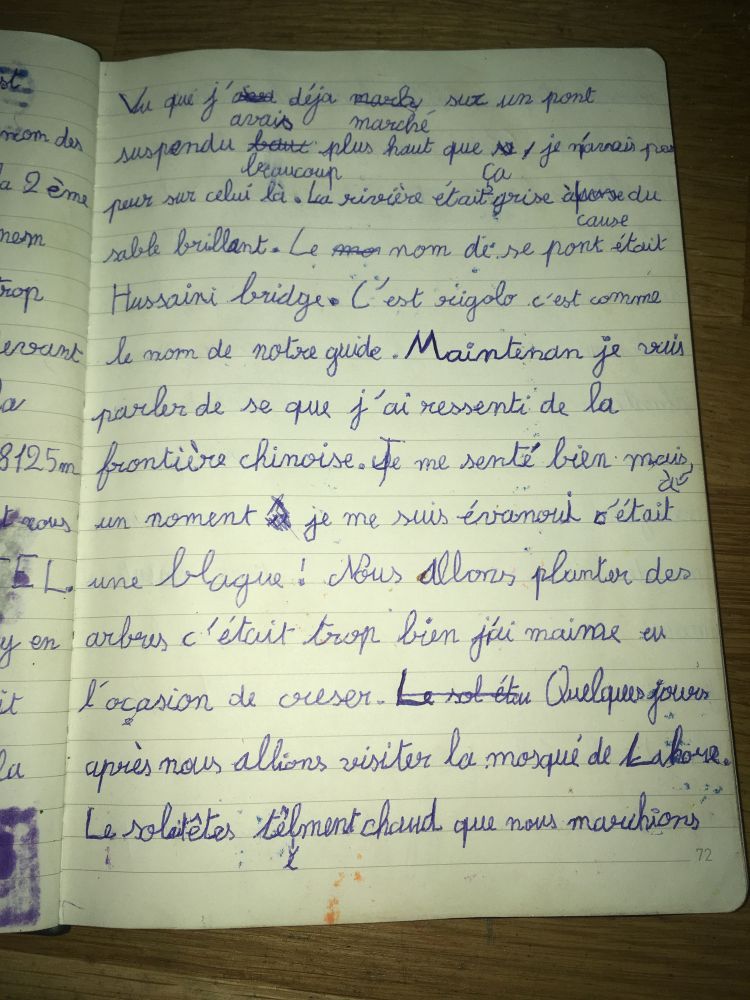 st
nom des
la 2 ème
nem
trop
devant
la
8125m
t nous
EL.
y en
it
la
Vu que j'avais déja marché sur un pont
suspendu beaucoup plus haut que ça, je n'avais pas
peur sur celui là. La rivière était grise à cause du
sable brillant. Le nom de se pont était
Hussaini bridge. C'est rigolo c'est comme
le nom de notre guide. Maintenan je vais
parler de se que j'ai ressenti de la
frontière chinoise. Je me senté bien mais, à
un noment je me suis évanoui c'était
une blague! Nous allons planter des
arbres c'était trop bien j'ai maime eu
l'ocasion de creser. Le sol étai Quelques jours
après nous allions visiter la mosqué de Lahore.
Le sol têtes têlment chaud que nous marchions
72